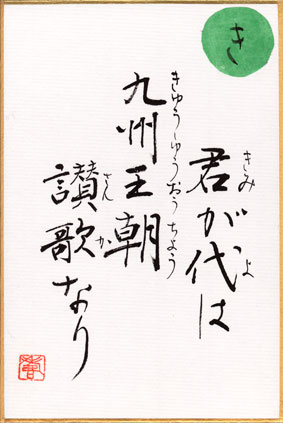 き
君が代は
きみ よ
九州王朝
きゅうしゅうおうちょう
讃歌なり
さんか